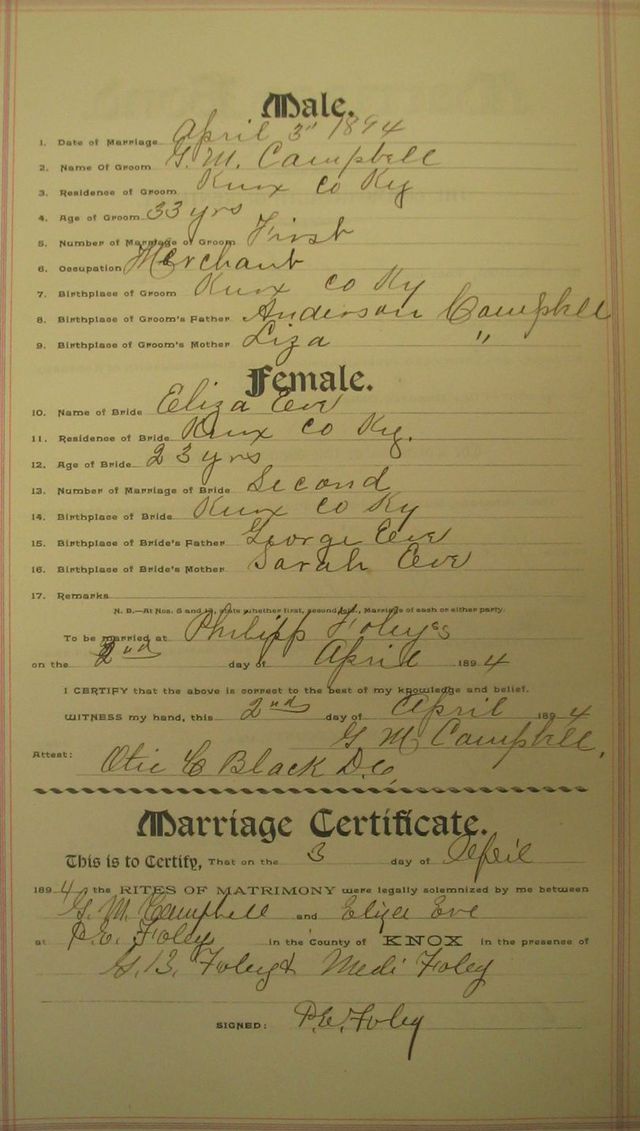 Male.
1. Date of Marriage April 3" 1894
2. Name Of Groom G. M. Campbell
3. Residence of Groom Knox Co Ky
4. Age of Groom 33 yrs
5. Number of Marriage of Groom First
6. Occupation Merchant
7. Birthplace of Groom Knox Co Ky
8. Birthplace of Groom's Father Anderson Campbell
9. Birthplace of Groom's Mother Liza "
Female.
10. Name of Bride Eliza Eve
11. Residence of Bride Knox Co Ky.
12. Age of Bride 23 yrs
13. Number of Marriage of Bride Second
14. Birthplace of Bride Knox Co Ky
15. Birthplace of Bride's Father George Eve
16. Birthplace of Bride's Mother Sarah Eve
17. Remarks
N. B.—At Nos. 5 and 13, state whether first, second, etc., Marriage of each or either party.
To be married at Philipp Foley's
on the 2nd day of April 1894
I CERTIFY that the above is correct to the best of my knowledge and belief.
WITNESS my hand, this 2nd day of April 1894
G M Campbell,
Attest: Otie C Black D.C.
Marriage Certificate.
This is to Certify, That on the 3 day of April
1894 the RITES OF MATRIMONY were legally solemnized by me between
G. M. Campbell and Eliza Eve
at P.E. Foley in the County of KNOX in the presence of
G. B. Foley & Medi Foley
SIGNED: P.E. Foley